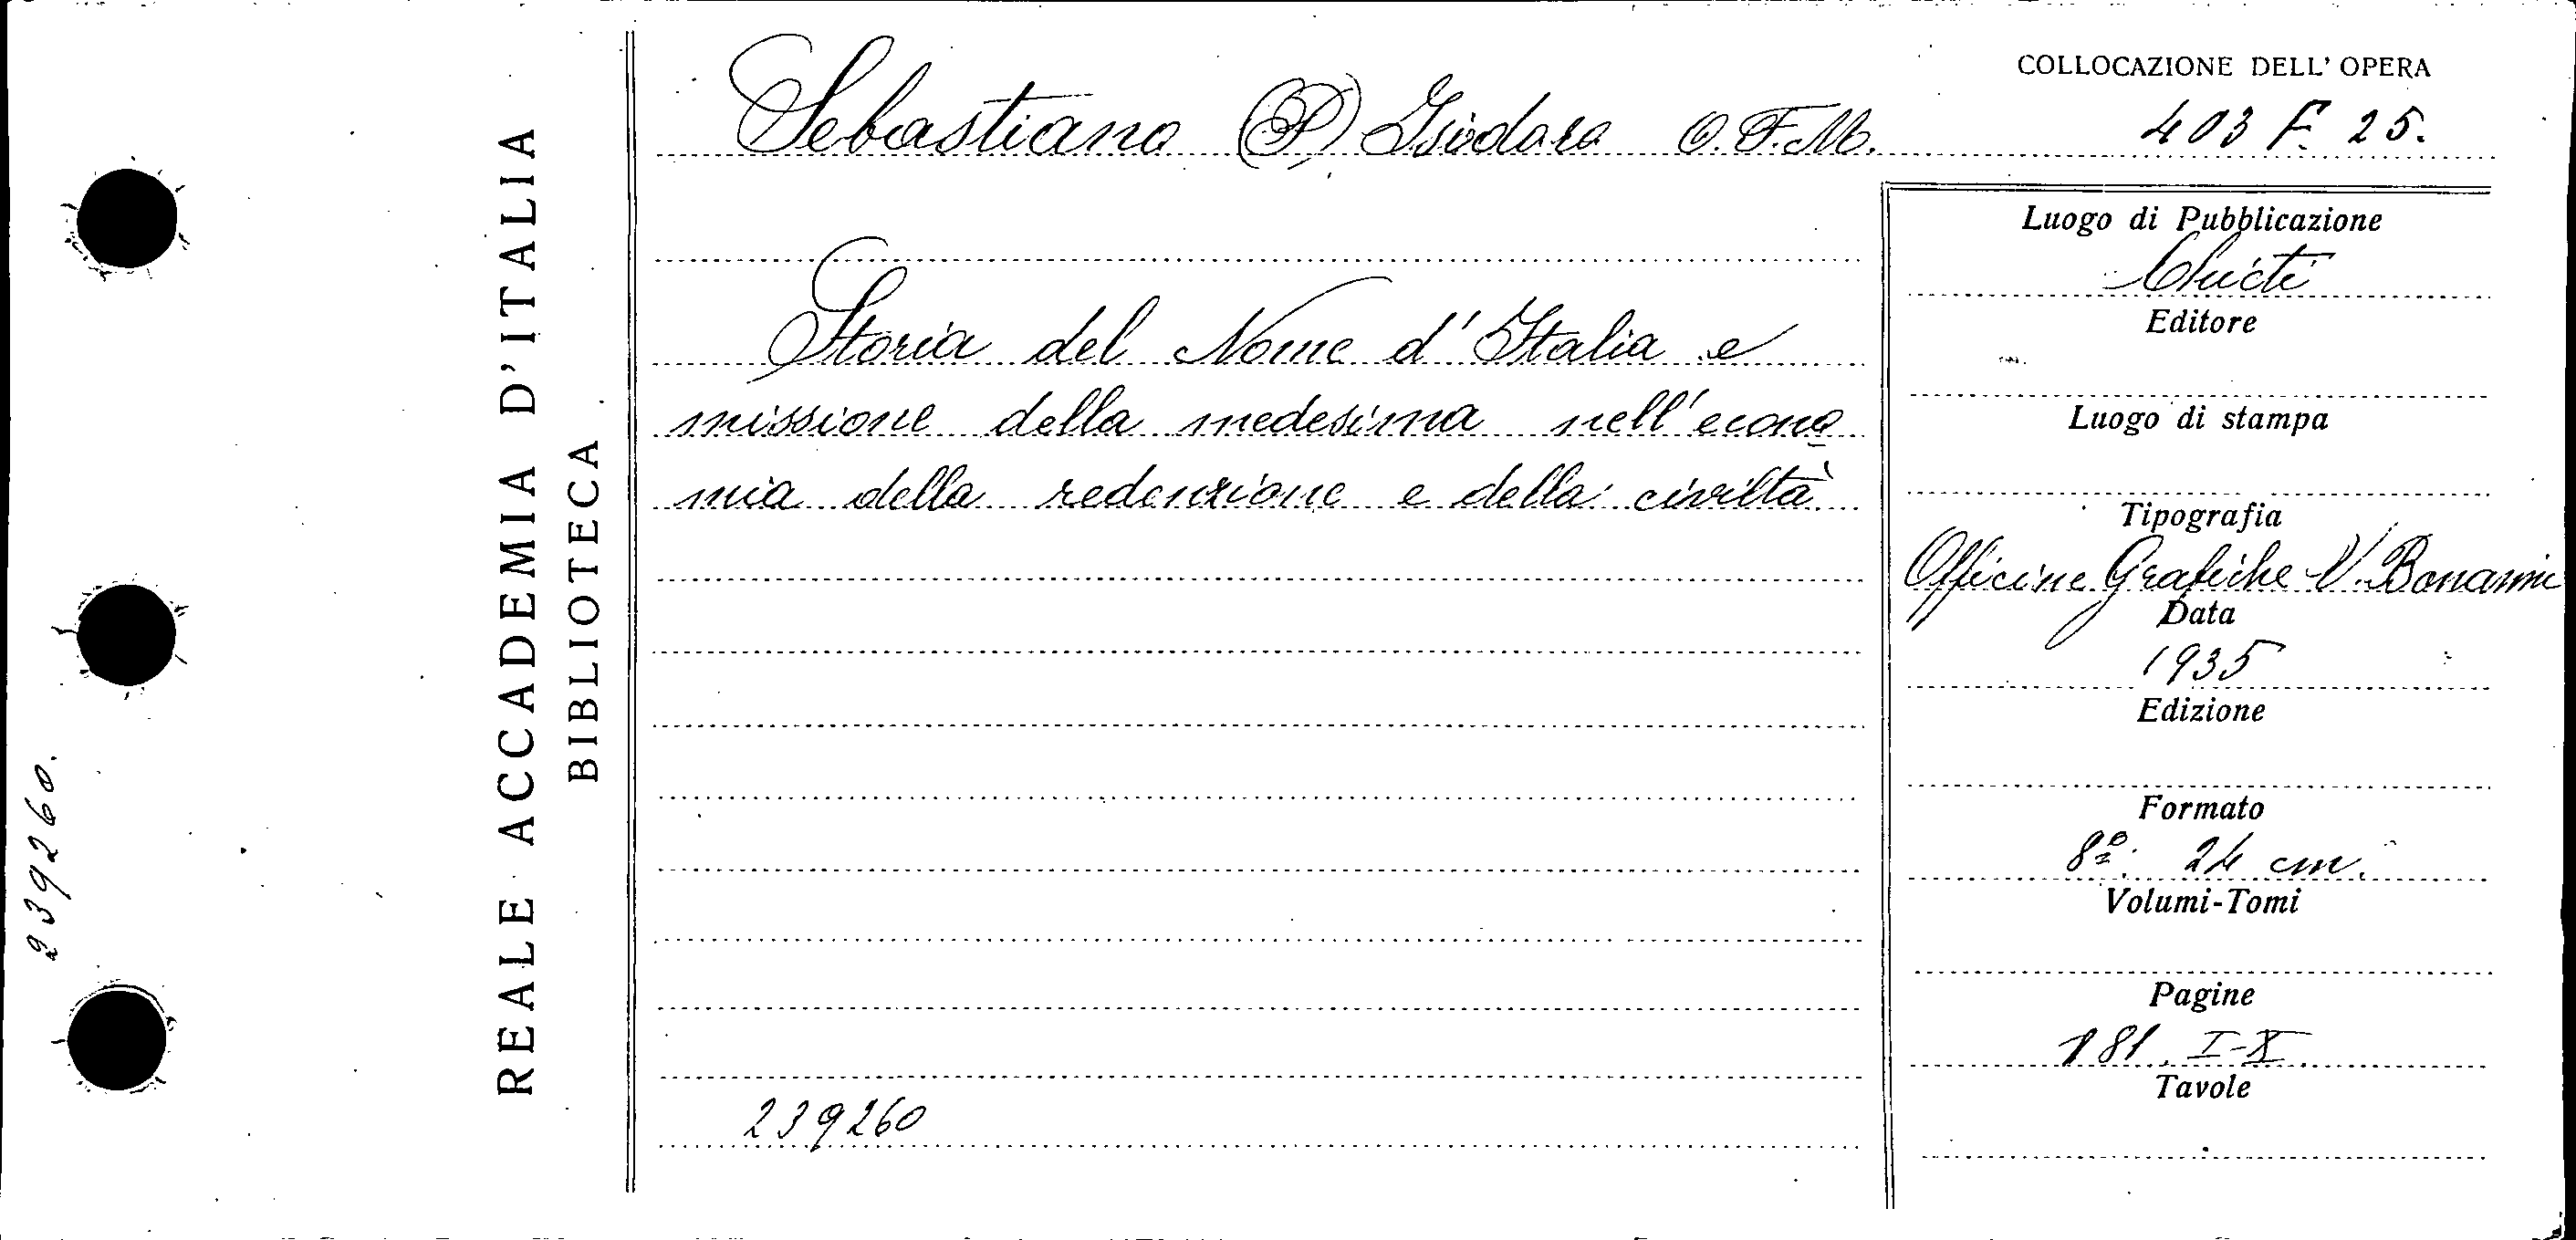 239260.
REALE ACCADEMIA D'ITALIA
BIBLIOTECA
Sebastiano (P) Isidoro O.F.M.
Storia del Nome d'Italia e
missione della medesima nell'econo
mia della redenzione e della civiltà
239260
COLLOCAZIONE DELL'OPERA
403 F. 25.
Luogo di Pubblicazione
Chieti
Editore
Luogo di stampa
Tipografia
Officine Grafiche V. Bonanni
Data
1935
Edizione
Formato
8º. 24 cm.
Volumi-Tomi
Pagine
181. I-X.
Tavole